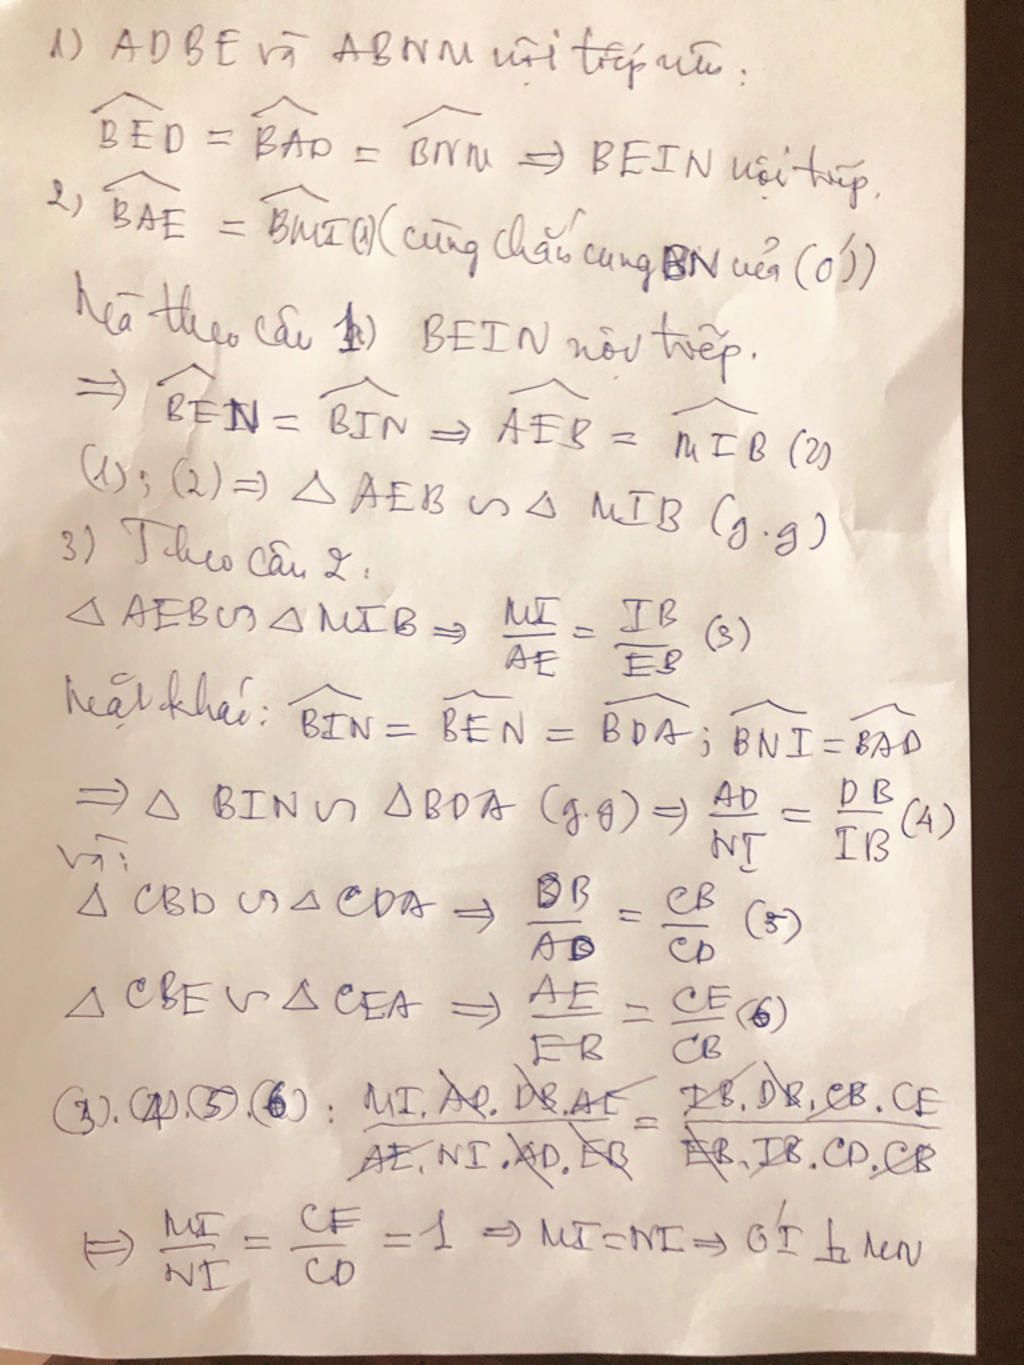 1) ADBE và ABNM nội tiếp nên:
∠BED = ∠BAD = ∠BNM ⇒ BEIN nội tiếp.
2) ∠BAE = ∠BMI (1) (cùng chắn cung BN của (O'))
Mà theo câu 1) BEIN nội tiếp.
⇒ ∠BEN = ∠BIN ⇒ ∠AEB = ∠MIB (2)
(1); (2) ⇒ △ AEB ∽ △ MIB (g.g)
3) Theo câu 2.
△ AEB ∽ △ MIB ⇒ MI/AE = IB/EB (3)
Mặt khác: ∠BIN = ∠BEN = ∠BDA; ∠BNI = ∠BAD
⇒ △ BIN ∽ △BDA (g.g) ⇒ AD/NI = DB/IB (4)
và:
△ CBD ∽ △ CDA ⇒ DB/AD = CB/CD (5)
△ CBE ∽ △ CEA ⇒ AE/EB = CE/CB (6)
(3).(4).(5).(6): MI.AD.DB.AE/AE.NI.AD.EB = IB.DB.CB.CE/EB.IB.CD.CB
⇔ MI/NI = CE/CD = 1 ⇒ MI=NI ⇒ O'I ⊥ MN